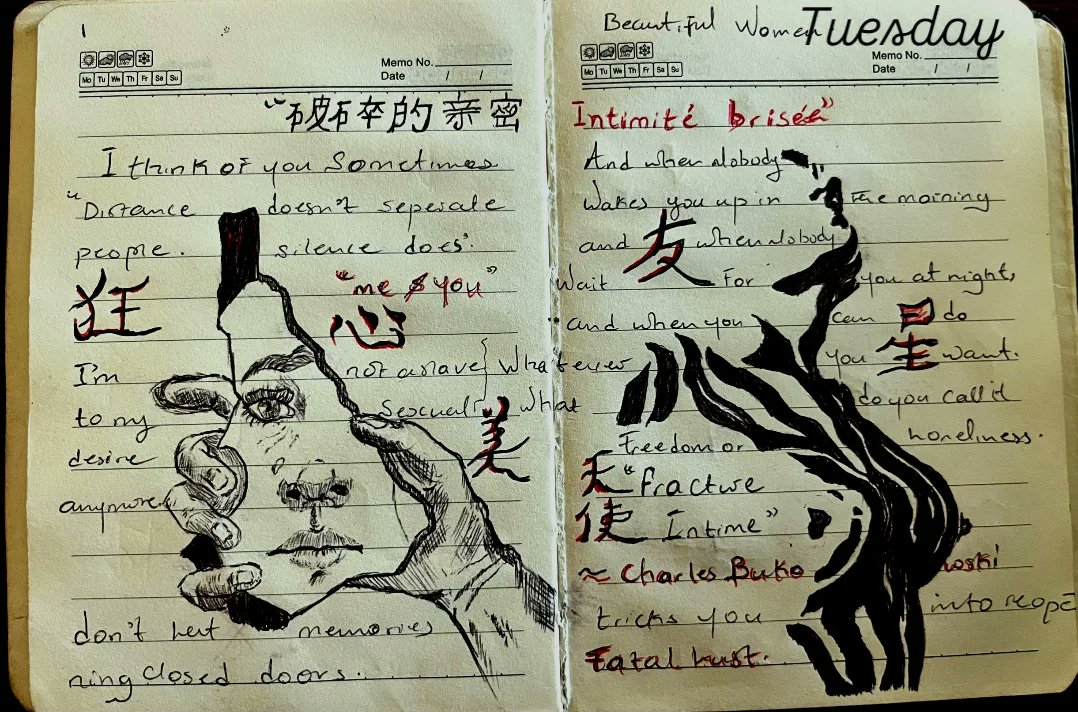 1
Mo Tu We Th Fr Sa Su
Memo No.
Date / /
"破砕的亲密
I think of you Sometimes
"Distance doesn't seperale
people. silence does".
狂 "me $ you"
心
I'm not a slave { Whatever
to my Sexual What
desire 美
anymore.
don't let memories
ning closed doors.
Beautiful Women Tuesday
Mo Tu We Th Fr Sa Su
Memo No.
Date / /
Intimité brisée"
And when nobody
Wakes you up in the morning
and 友 when nobody
Wait For you at night,
and when you can 日 do
you 生 want.
do you call it
Freedom or loneliness.
天 "Fracture
使 Intime"
~ Charles Buko woski
tricks you into reope
Fatal Lust.